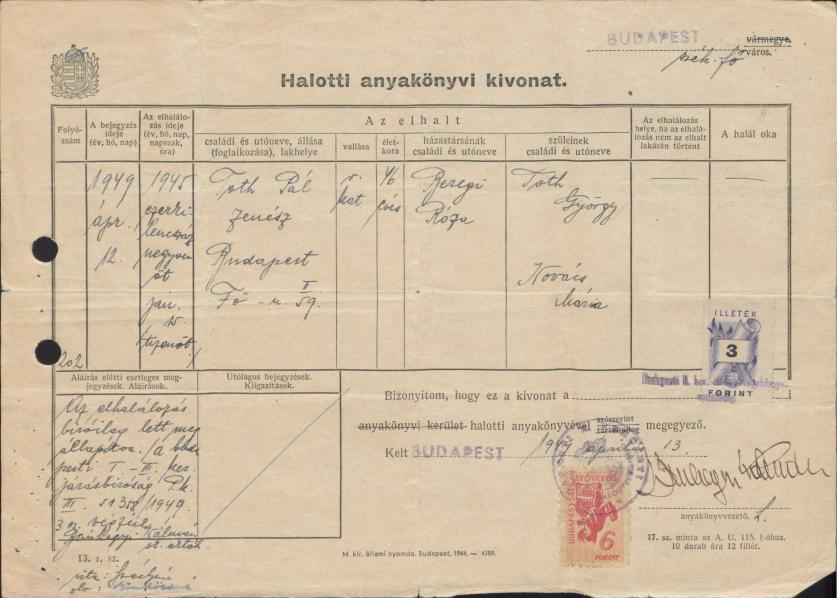 BUDAPEST vármegye
szék. fő város.
Halotti anyakönyvi kivonat.
Folyó-
szám
A bejegyzés
ideje
(év, hó, nap)
Az elhalálo-
zás ideje
(év, hó, nap,
napszak,
óra)
Az elhalt
családi és utóneve, állása
(foglalkozása), lakhelye
vallása
élet-
kora
házastársának
családi és utóneve
szüleinek
családi és utóneve
Az elhalálozás
helye, ha az elhalt
lakásán történt
A halál oka
202
1949
ápr.
12.
1945
ezerki-
lencszáz
negyven
öt
jan.
15.
tizenöt
Toth Pál
zenész
Budapest
Fő - u. 59.
r.
kat
46
éves
Beregi
Róza
Toth
György
Kovács
Mária
ILLETÉK
3
FORINT
Aláírás előtti esetleges meg-
jegyzések. Aláírások.
Az elhalálozás
biróilag lett meg
állapitva. /a buda
pesti I - III. ker.
járásbiróság Pk.
III. 51358/1949.
Utólagos bejegyzések.
Kiigazítások.
Bizonyítom, hogy ez a kivonat a
anyakönyvi kerület halotti anyakönyvével szószerint megegyező.
Kelt BUDAPEST 1949 április 13.
BUDAPEST SZÉKESFŐVÁROS
6
FORINT
anyakönyvvezető
13. r. sz.
M. kir. állami nyomda. Budapest, 1944. — 4589.
17. sz. minta az A. U. 115. §-ához.
10 darab ára 12 fillér.